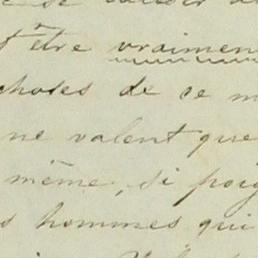 t être vraimen
choses de ce m
ne valent que
même, si poig
s hommes qui